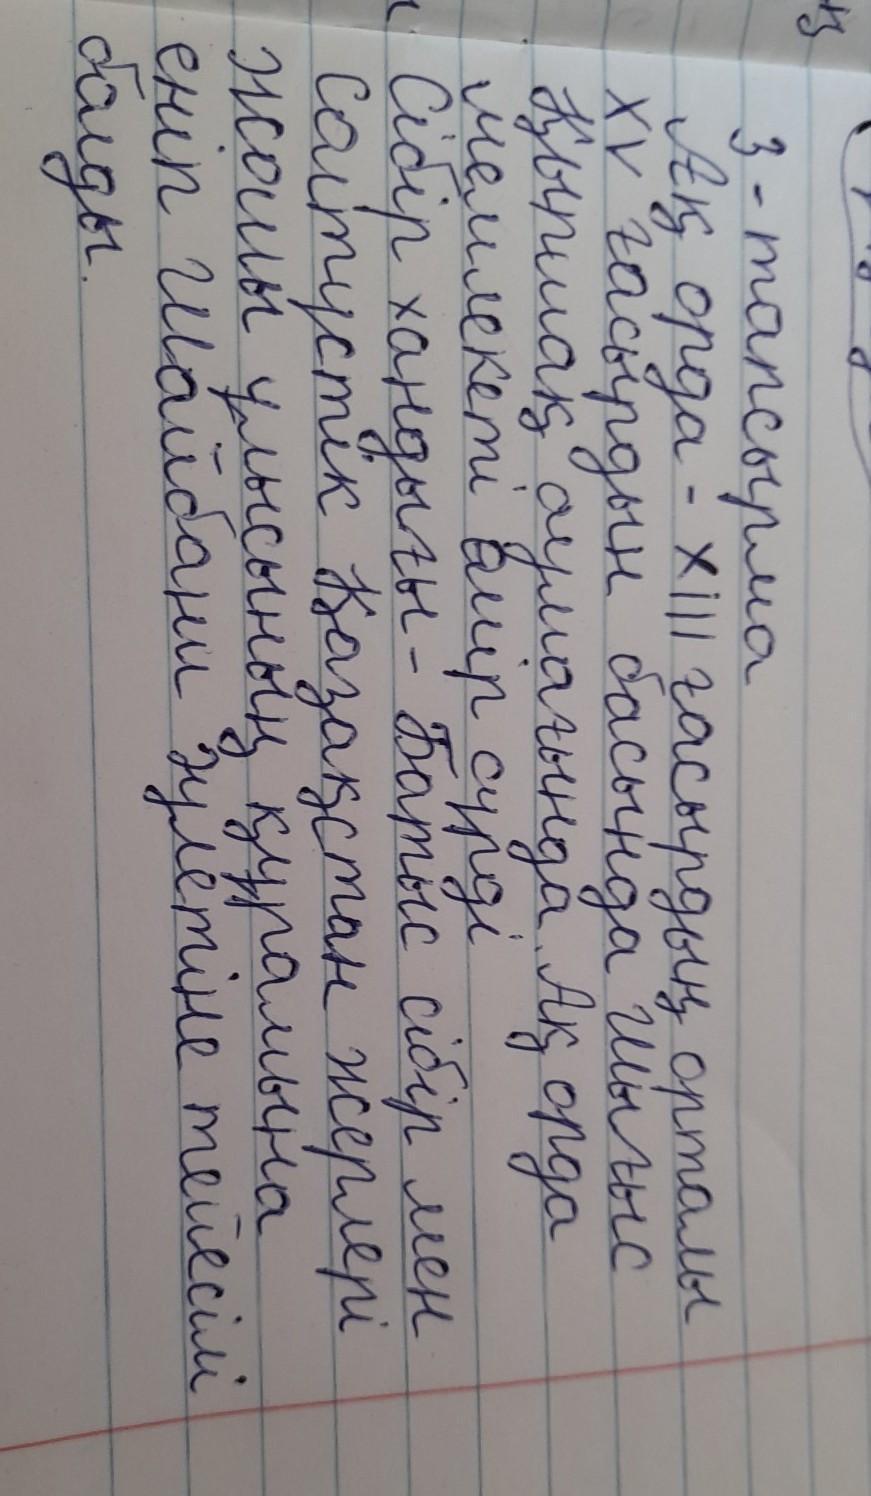 3-тапсырма
Ақ орда - XIII ғасырдың орталы
XV ғасырдын басында шығыс
Қыпшақ аумағында. Ақ орда
мемлекеті өмір сүрді
Сібір хандығы - Батыс сібір мен
Солтүстік Қазақстан жерлері
Жошы ұлысының құрамына
еніп Шайбани әулетіне тейесілі
болды.